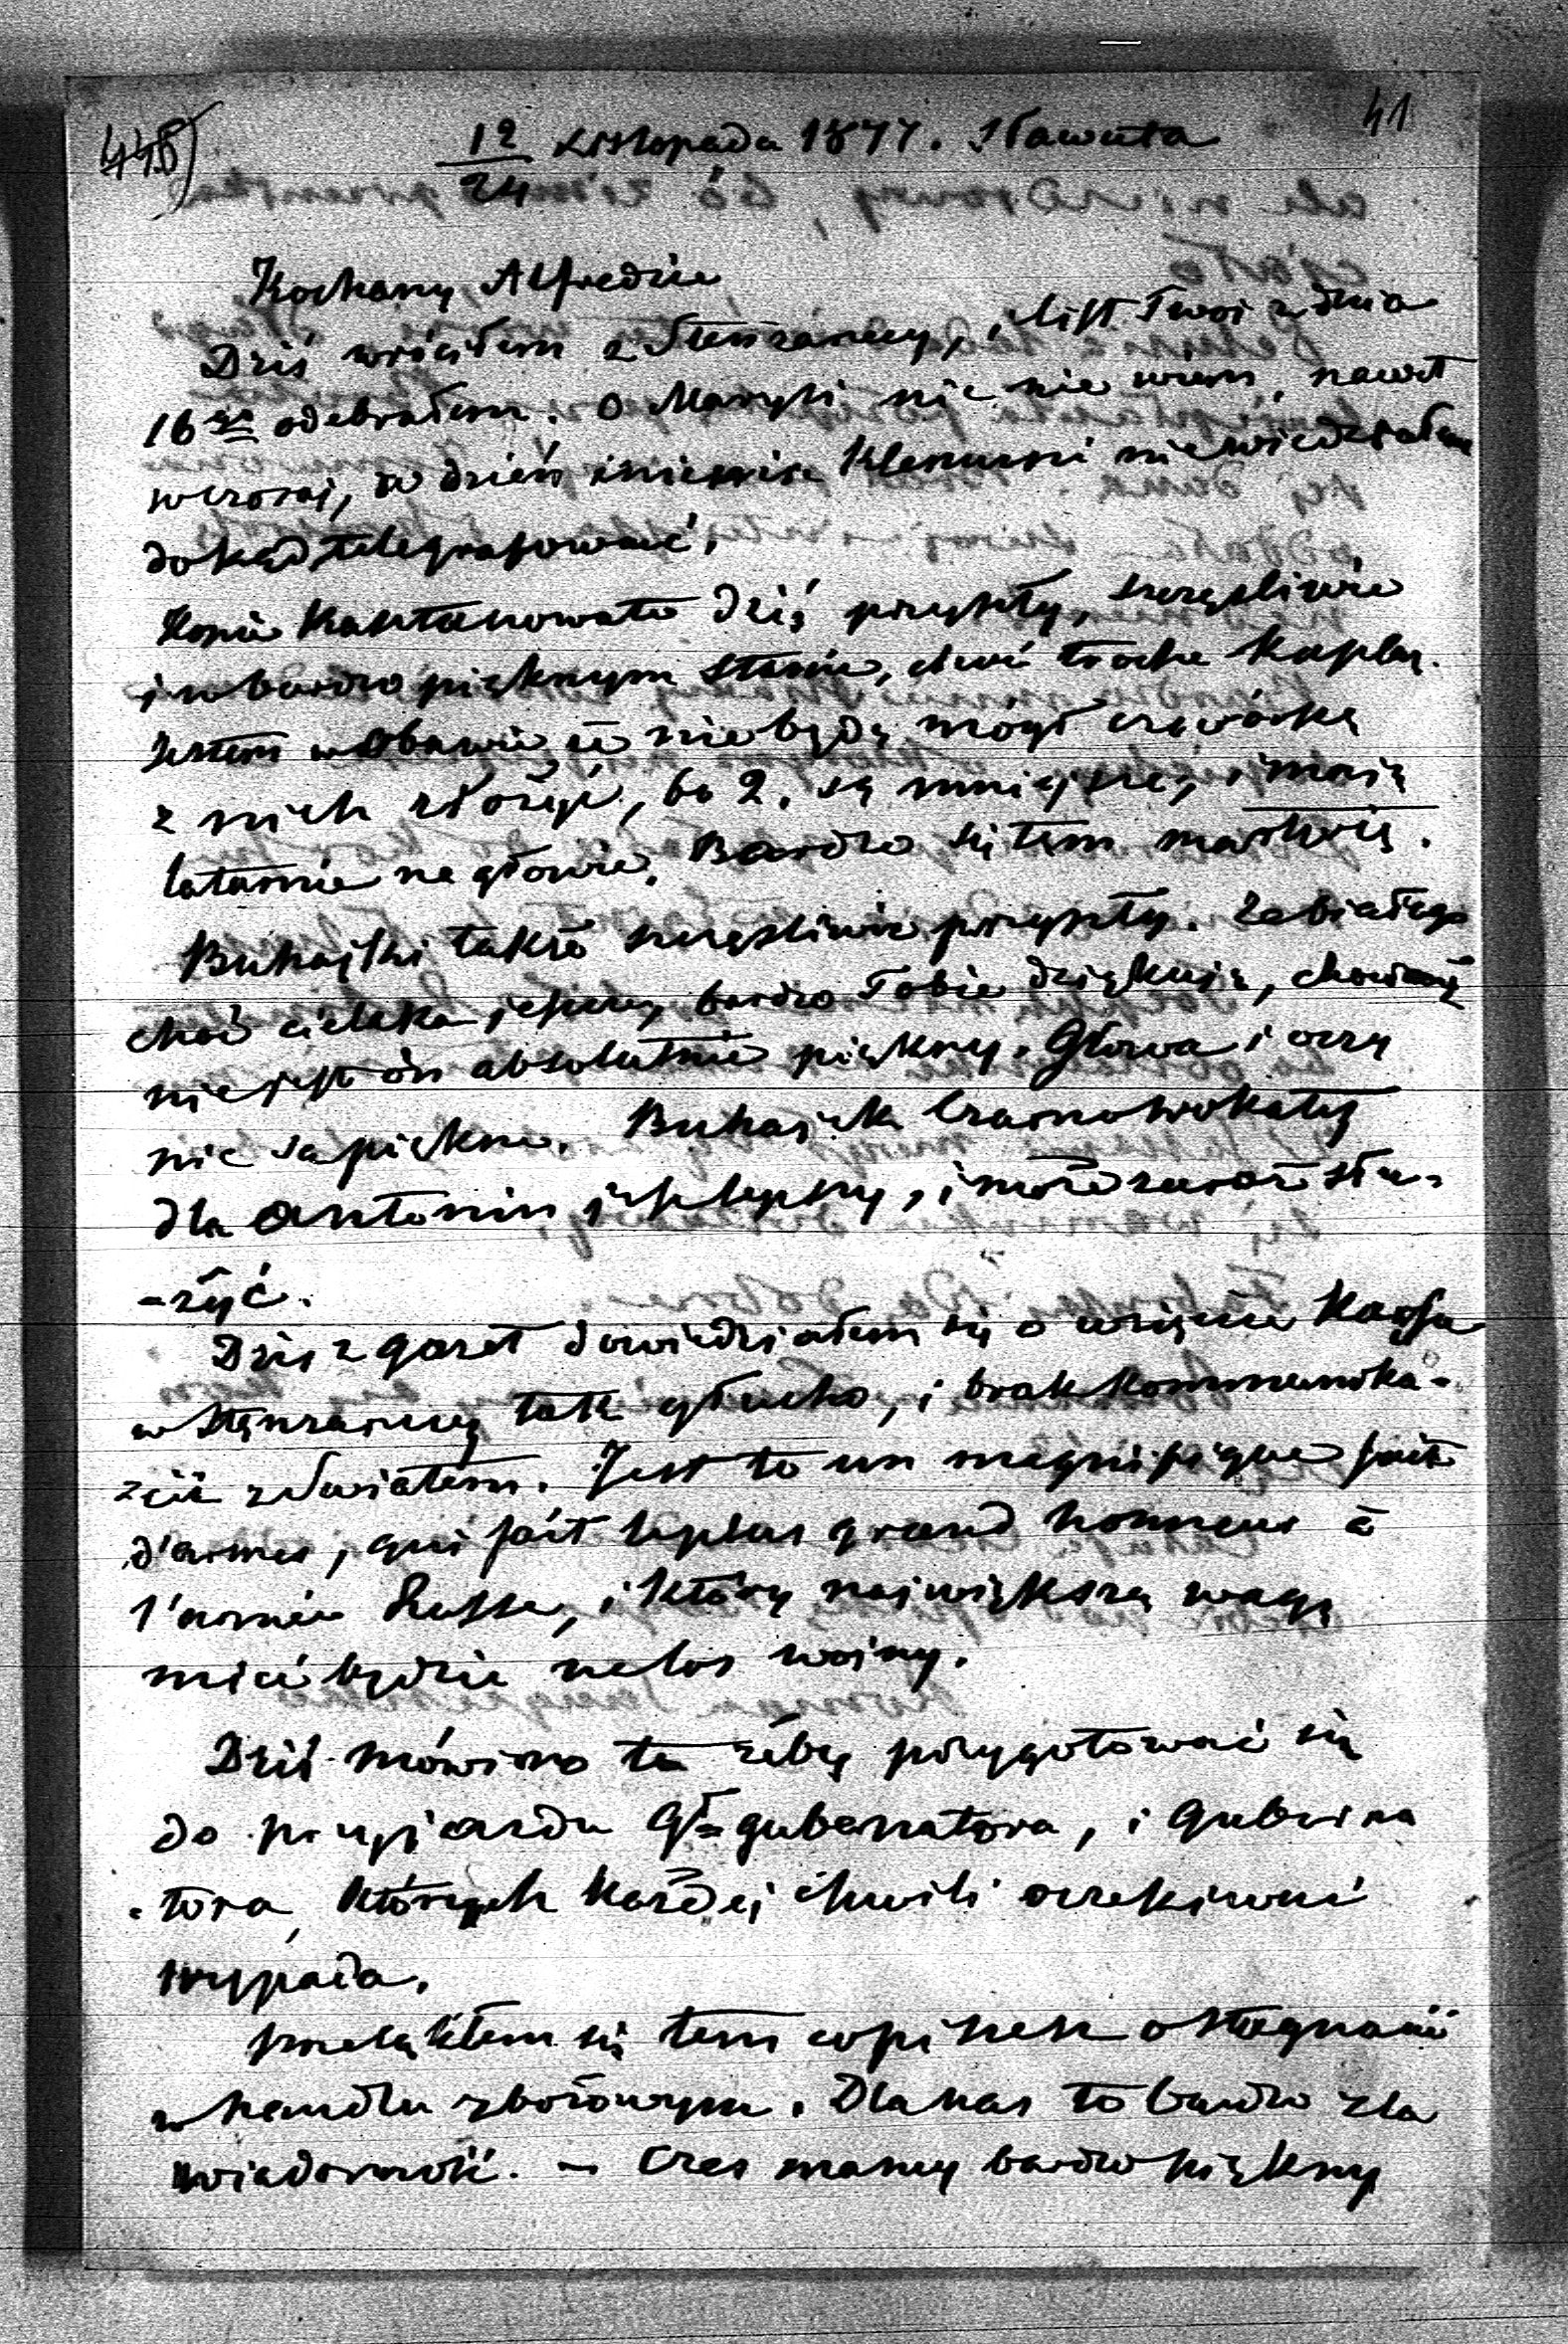 448) 41
12/24 Listopada 1877. Sławuta
Kochany Alfredzie
Dziś wróciłem z Stenżarycy, i list Twoi z dnia
16go odebrałem. O Maryli nic nie wiem, nawet
wczoraj, w dzień imienin Klemensi niewiedziałem
dokąd telegrafować.
Konie Kasztanowate dziś przyszły, szczęśliwie
i w bardzo pięknym stanie, choć trochę kaplą.
Jestem w obawie że niebędę mógł czwórkę
z nich złożyć, bo 2. są mniejsze, i mają
latarnie na głowie. Bardzo się tem martwię.
Buhajki także szczęśliwie przyszły. Za białego
choć cielaka jeszcze, bardzo Tobie dziękuję, chociaż
nie jest on absolutnie piękny. Głowa i oczy
nie są piękne. Buhajek Czarnowrokaty
dla Antonin jest lepszy, i może zaraz słu-
-żyć.
Dziś z gazet dowiedziałem się o wzięciu Karsu
w Stenżarycy tak głucho, i brak kommunika-
zcii z Światem. Jest to un magnifique fait
d'armes, qui fait le plus grand honneur à
l'armée Russe, i który największą wagę
mieć będzie na los wojny.
Dziś mówiono tu żeby przygotować się
do przyjazdu Gł= gubernatora, i Guberna
-tora, których każdej chwili oczekiwać
wypada.
Przeląkłem się tem co piszesz o stagnacii
w handlu zbożowym. Dla nas to bardzo zła
wiadomość. – Czas mamy bardzo piękny